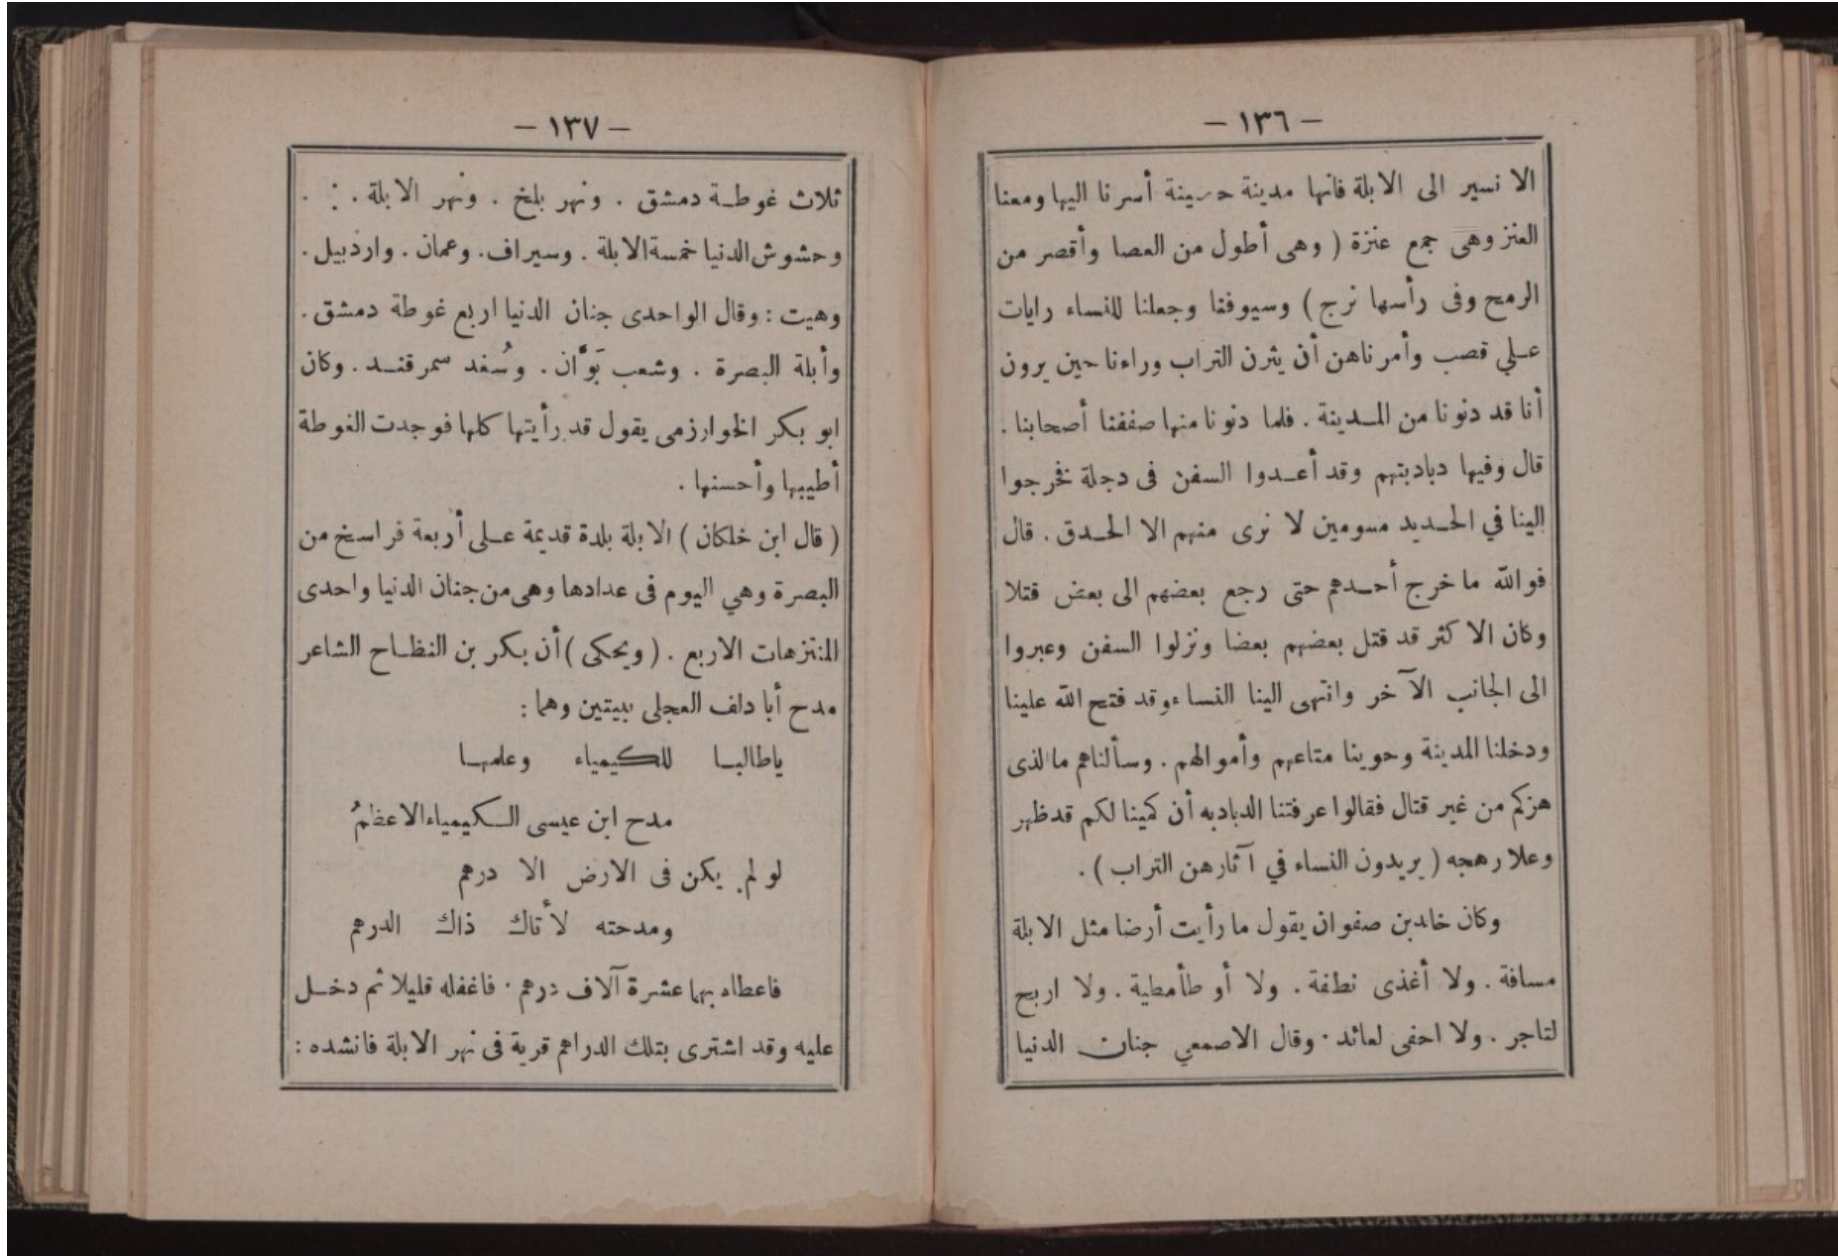 — ١٣٦ —
الا نسير الى الابلة فانها مدينة حصينة أسرنا اليها ومعنا
العنز وهى جمع عنزة ( وهى أطول من العصا وأقصر من
الرمح وفى رأسها زج ) وسيوفنا وجعلنا للنساء رايات
عـلي قصب وأمرناهن أن يثرن التراب وراءنا حين يرون
أنا قد دنونا من المـدينة . فلما دنونا منها صففنا أصحابنا .
قال وفيها ديادبتهم وقد أعـدوا السفن فى دجلة فخرجوا
الينا في الحـديد مسومين لا نرى منهم الا الحـدق . قال
فوالله ما خرج أحـدهم حتى رجع بعضهم الى بعض قتلا
وكان الاكثر قد قتل بعضهم بعضا ونزلوا السفن وعبروا
الى الجانب الآخر وانتهى الينا النساء وقد فتح الله علينا
ودخلنا المدينة وحوينا متاعهم وأموالهم . وسألناهم ما الذى
هزمكم من غير قتال فقالوا عرفتنا الديادبه أن كمينا لكم قد ظهر
وعلا رهجه ( يريدون النساء في آثارهن التراب ) .
وكان خالد بن صفوان يقول ما رأيت أرضا مثل الابلة
مسافة . ولا أغذى نطفة . ولا أوطأ مطية . ولا اربح
لتاجر . ولا احفى لعائد . وقال الاصمعي جنان الدنيا
— ١٣٧ —
ثلاث غوطـة دمشق . ونهر بلخ . ونهر الابلة .
وحشوش الدنيا خمسة الابلة . وسيراف . وعمان . واردبيل .
وهيت : وقال الواحدى جنان الدنيا اربع غوطة دمشق .
وأبلة البصرة . وشعب بَوَّان . وسُغد سمرقنـد . وكان
ابو بكر الخوارزمى يقول قد رأيتها كلها فوجدت الغوطة
أطيبها وأحسنها .
( قال ابن خلكان ) الابلة بلدة قديمة عـلى أربعة فراسخ من
البصرة وهي اليوم فى عدادها وهى من جنان الدنيا واحدى
المنتزهات الاربع . ( ويحكى ) أن بكر بن النظـاح الشاعر
مدح أبا دلف العجلى ببيتين وهما :
ياطالبـا للكيمياء وعلمهـا
مدح ابن عيسى الـكيمياء الاعظمُ
لو لم يكن فى الارض الا درهم
ومدحته لأتاك ذاك الدرهم
فاعطاه بهما عشرة آلاف درهم . فاغفله قليلا ثم دخـل
عليه وقد اشترى بتلك الدراهم قرية فى نهر الابلة فانشده :